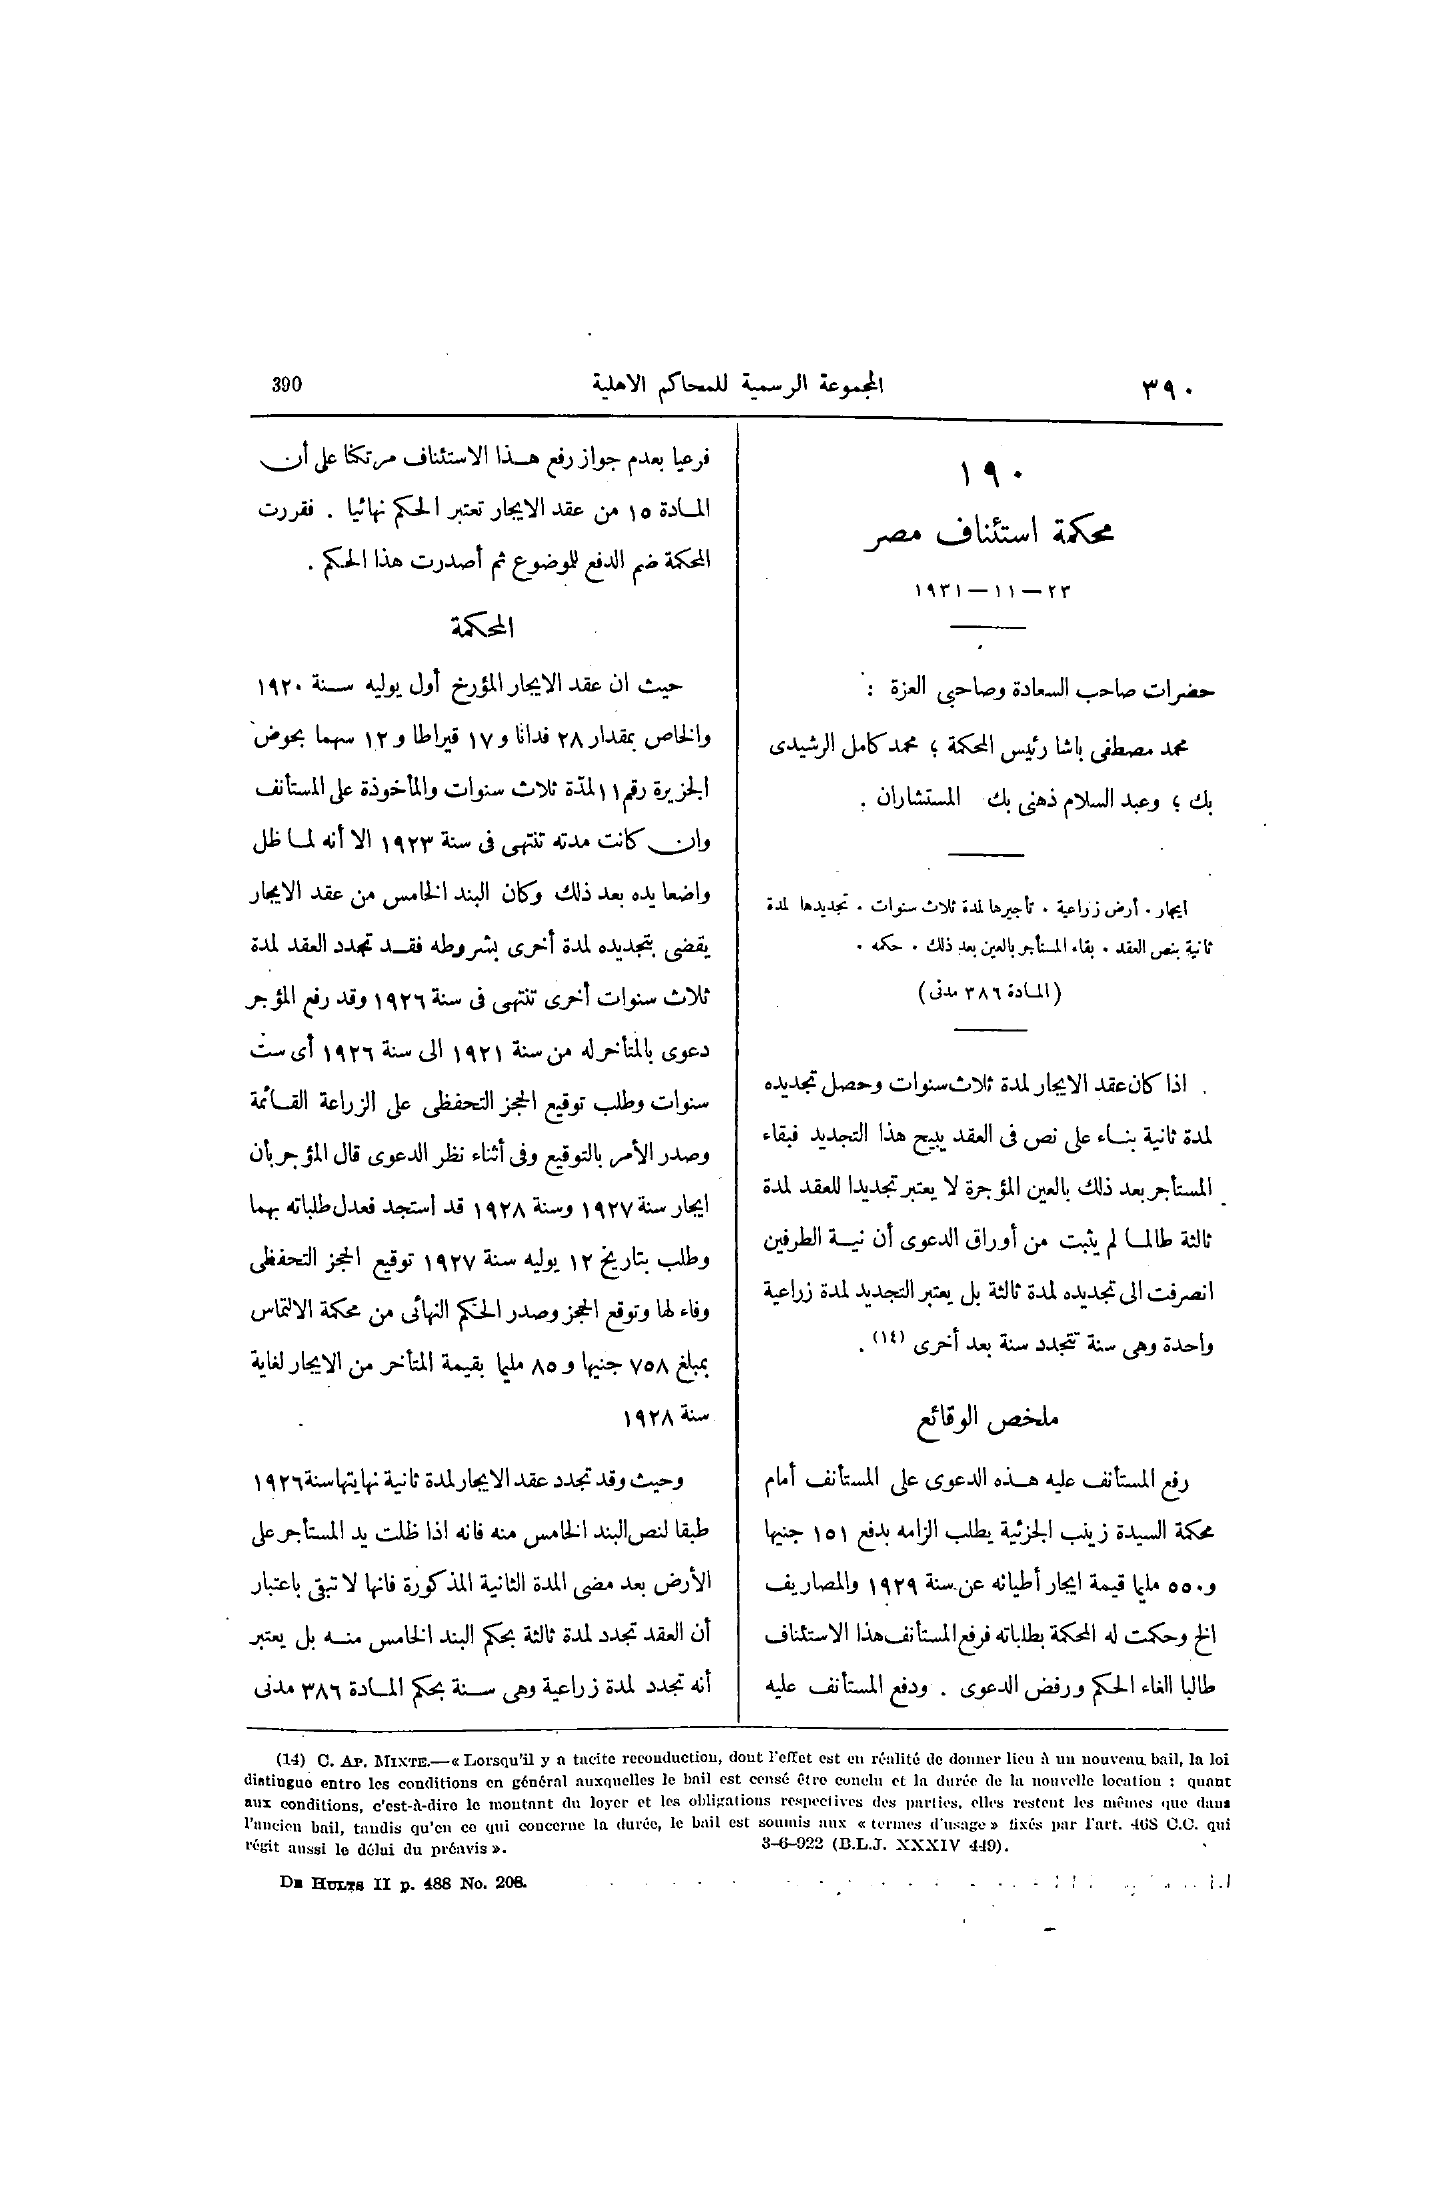 ٣٩٠ المجموعة الرسمية للمحاكم الاهلية 390
١٩٠
محكمة استئناف مصر
٢٣ — ١١ — ١٩٣١
حضرات صاحب السعادة وصاحبى العزة :
محمد مصطفى باشا رئيس المحكمة ؛ محمد كامل الرشيدى
بك ؛ وعبد السلام ذهنى بك المستشاران .
ايجار . أرض زراعية . تأجيرها لمدة ثلاث سنوات . تجديدها لمدة
ثانية بنص العقد . بقاء المستأجر بالعين بعد ذلك . حكمه .
(المادة ٣٨٦ مدنى)
اذا كان عقد الايجار لمدة ثلاث سنوات وحصل تجديده
لمدة ثانية بناء على نص فى العقد يبيح هذا التجديد فبقاء
المستأجر بعد ذلك بالعين المؤجرة لا يعتبر تجديدا للعقد لمدة
ثالثة طالما لم يثبت من أوراق الدعوى أن نية الطرفين
انصرفت الى تجديده لمدة ثالثة بل يعتبر التجديد لمدة زراعية
واحدة وهى سنة تتجدد سنة بعد أخرى (١٤) .
ملخص الوقائع
رفع المستأنف عليه هذه الدعوى على المستأنف أمام
محكمة السيدة زينب الجزئية يطلب الزامه بدفع ١٥١ جنيها
و ٥٥٠ مليما قيمة ايجار أطيانه عن سنة ١٩٢٩ والمصاريف
الخ وحكمت له المحكمة بطلباته فرفع المستأنف هذا الاستئناف
طالبا الغاء الحكم ورفض الدعوى . ودفع المستأنف عليه
فرعيا بعدم جواز رفع هذا الاستئناف مرتكنا على أن
المادة ١٥ من عقد الايجار تعتبر الحكم نهائيا . فقررت
المحكمة ضم الدفع للموضوع ثم أصدرت هذا الحكم .
المحكمة
حيث ان عقد الايجار المؤرخ أول يوليه سنة ١٩٢٠
والخاص بمقدار ٢٨ فدانا و ١٧ قيراطا و ١٢ سهما بحوض
الجزيرة رقم ١١ لمدة ثلاث سنوات والمأخوذة على المستأنف
وان كانت مدته تنتهى فى سنة ١٩٢٣ الا أنه لما ظل
واضعا يده بعد ذلك وكان البند الخامس من عقد الايجار
يقضى بتجديده لمدة أخرى بشروطه فقد تجدد العقد لمدة
ثلاث سنوات أخرى تنتهى فى سنة ١٩٢٦ وقد رفع المؤجر
دعوى بالمتأخر له من سنة ١٩٢١ الى سنة ١٩٢٦ أى ست
سنوات وطلب توقيع الحجز التحفظى على الزراعة القائمة
وصدر الأمر بالتوقيع وفى أثناء نظر الدعوى قال المؤجر بأن
ايجار سنة ١٩٢٧ وسنة ١٩٢٨ قد استجد فعدل طلباته بهما
وطلب بتاريخ ١٢ يوليه سنة ١٩٢٧ توقيع الحجز التحفظى
وفاء لها وتوقع الحجز وصدر الحكم النهائى من محكمة الالتماس
بمبلغ ٧٥٨ جنيها و ٨٥ مليما بقيمة المتأخر من الايجار لغاية
سنة ١٩٢٨
وحيث وقد تجدد عقد الايجار لمدة ثانية نهايتها سنة ١٩٢٦
طبقا لنص البند الخامس منه فانه اذا ظلت يد المستأجر على
الأرض بعد مضى المدة الثانية المذكورة فانها لا تبقى باعتبار
أن العقد تجدد لمدة ثالثة بحكم البند الخامس منه بل يعتبر
أنه تجدد لمدة زراعية وهى سنة بحكم المادة ٣٨٦ مدنى
(14) C. AP. MIXTE.—« Lorsqu'il y a tacite reconduction, dont l'effet est en réalité de donner lieu à un nouveau bail, la loi
distingue entre les conditions en général auxquelles le bail est censé être conclu et la durée de la nouvelle location : quant
aux conditions, c'est-à-dire le montant du loyer et les obligations respectives des parties, elles restent les mêmes que dans
l'ancien bail, tandis qu'en ce qui concerne la durée, le bail est soumis aux « termes d'usage » fixés par l'art. 468 C.C. qui
régit aussi le délai du préavis ». 3-6-922 (B.L.J. XXXIV 449).
DE HULTS II p. 488 No. 208.